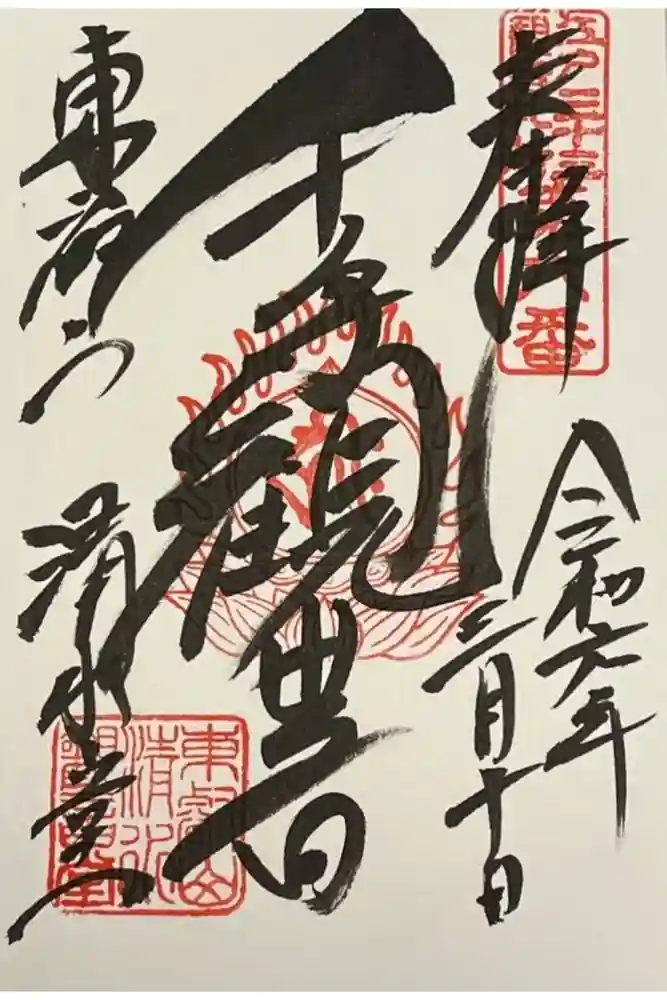 奉拝
令和六年
三月十日
千手觀世音
東叡山
清水堂
東叡山
清水
觀音堂